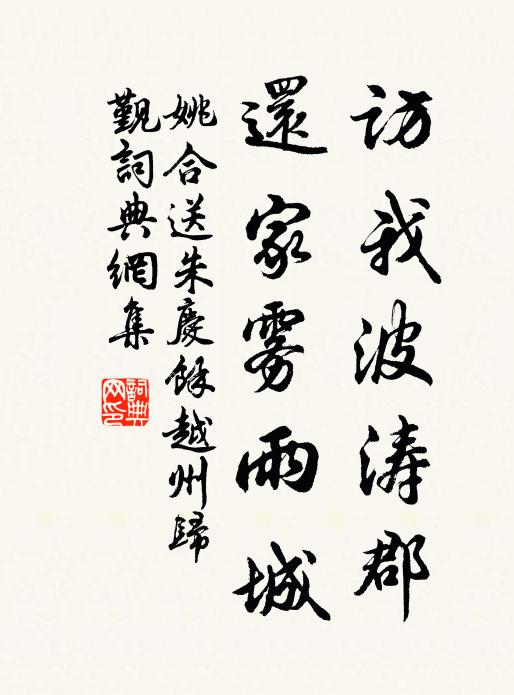 访我波涛郡
還家雾雨城
姚合送朱慶餘越州歸
觀詞典網集
詞典
网印